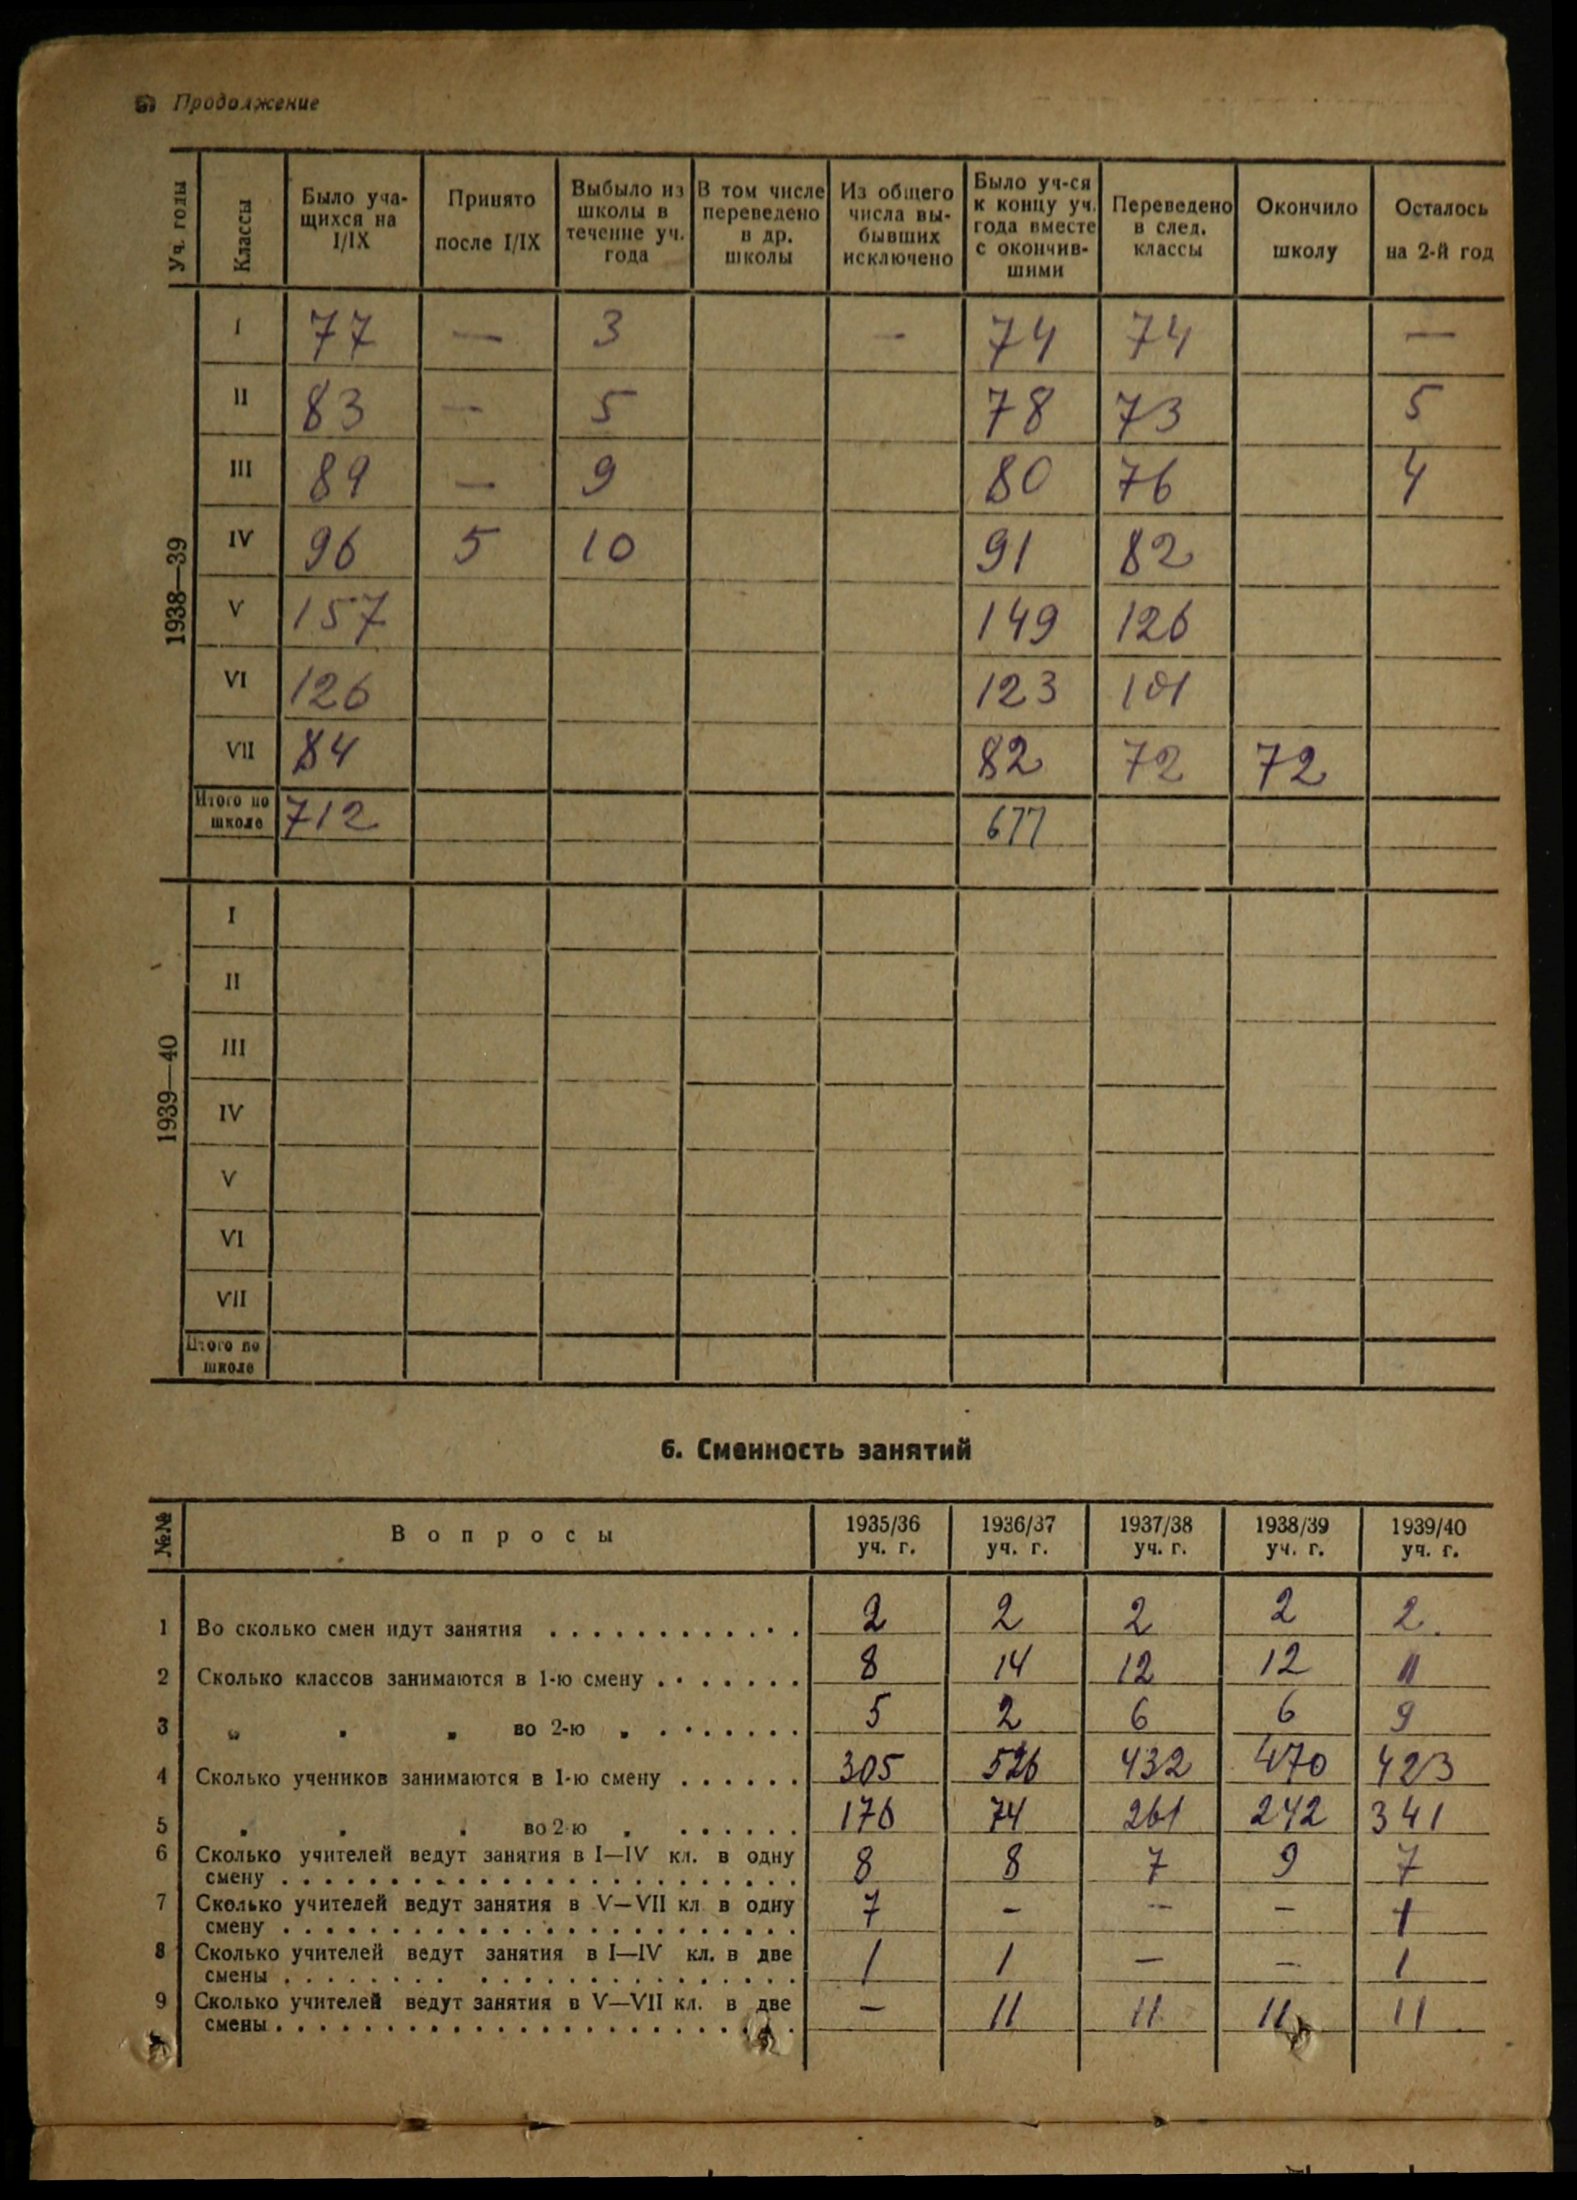 Продолжение
Уч. годы | Классы | Было учащихся на I/IX | Принято после I/IX | Выбыло из школы в течение уч. года | В том числе переведено в др. школы | Из общего числа выбывших исключено | Было уч-ся к концу уч. года вместе с окончившими | Переведено в след. классы | Окончило школу | Осталось на 2-й год
1938—39
I | 77 | — | 3 | | — | 74 | 74 | | —
II | 83 | — | 5 | | | 78 | 73 | | 5
III | 89 | — | 9 | | | 80 | 76 | | 4
IV | 96 | 5 | 10 | | | 91 | 82 | |
V | 157 | | | | | 149 | 126 | |
VI | 126 | | | | | 123 | 101 | |
VII | 84 | | | | | 82 | 72 | 72 |
Итого по школе | 712 | | | | | 677 | | |
1939—40
I
II
III
IV
V
VI
VII
Итого по школе
6. Сменность занятий
№№ | Вопросы | 1935/36 уч. г. | 1936/37 уч. г. | 1937/38 уч. г. | 1938/39 уч. г. | 1939/40 уч. г.
1 | Во сколько смен идут занятия | 2 | 2 | 2 | 2 | 2
2 | Сколько классов занимаются в 1-ю смену | 8 | 14 | 12 | 12 | 11
3 | " " " во 2-ю " | 5 | 2 | 6 | 6 | 9
4 | Сколько учеников занимаются в 1-ю смену | 305 | 526 | 432 | 470 | 423
5 | " " " во 2-ю " | 176 | 74 | 261 | 242 | 341
6 | Сколько учителей ведут занятия в I—IV кл. в одну смену | 8 | 8 | 7 | 9 | 7
7 | Сколько учителей ведут занятия в V—VII кл. в одну смену | 7 | – | – | – | 1
8 | Сколько учителей ведут занятия в I—IV кл. в две смены | 1 | 1 | – | – | 1
9 | Сколько учителей ведут занятия в V—VII кл. в две смены | – | 11 | 11 | 11 | 11